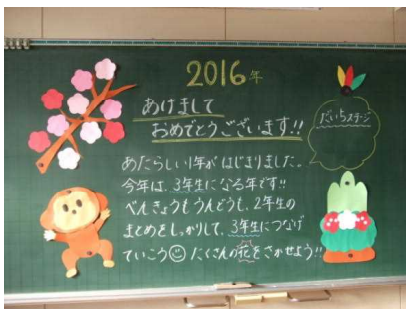 2016年
あけまして
おめでとうございます!!
だいちステージ
あたらしい1年がはじまりました。
今年は、3年生になる年です!!
べんきょうもうんどうも、2年生の
まとめをしっかりして、3年生につなげ
ていこう☺たくさんの花をさかせよう!!